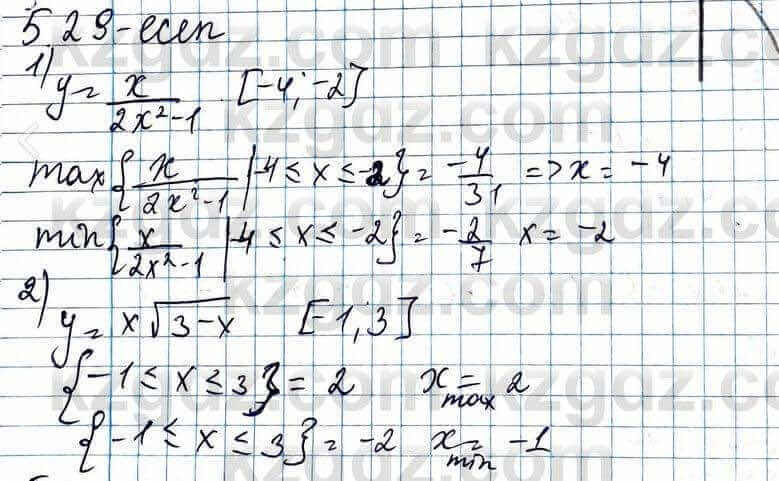 5.29-есеп
1) y = x/(2x²-1) [-4; -2]
max{x/(2x²-1) | -4 ≤ x ≤ -2} = -4/31 => x = -4
min{x/(2x²-1) | -4 ≤ x ≤ -2} = -2/7 x = -2
2) y = x√(3-x) [-1; 3]
{-1 ≤ x ≤ 3} = 2 x max = 2
{-1 ≤ x ≤ 3} = -2 x min = -1
kzgdz.com